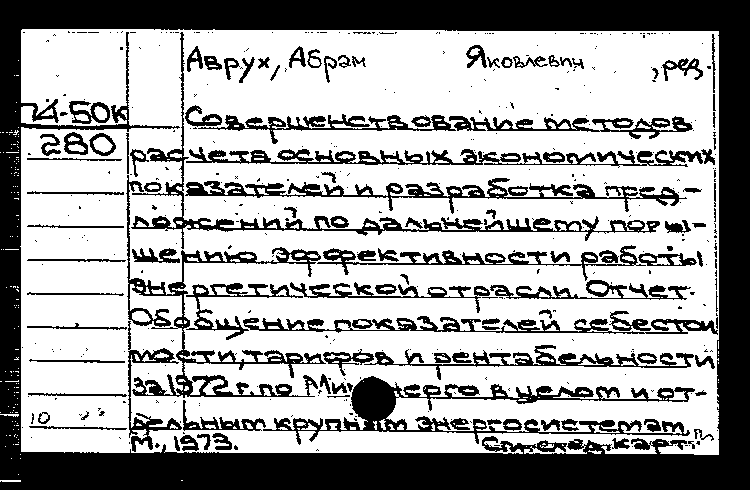 Аврух, Абрам Яковлевич, ред.
74-50к
280
Совершенствование методов
расчета основных экономических
показателей и разработка пред-
ложений по дальнейшему повы-
шению эффективности работы
энергетической отрасли. Отчет.
Обобщение показателей себестои
мости, тарифов и рентабельности
за 1972 г. по Минэнерго в целом и от-
дельным крупным энергосистемам.
10
М., 1973.
См. след. карт.